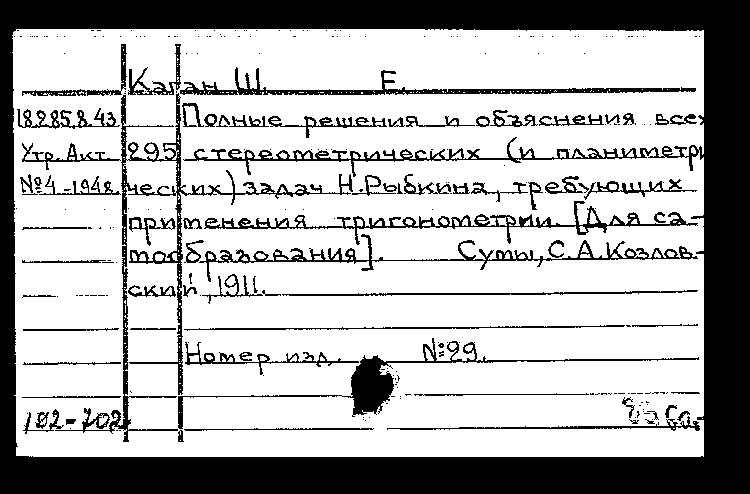 Каган Ш. Е.
18285.8.43 Полные решения и объяснения всех
Утр. Акт 295 стереометрических (и планиметри
№4-1948 ческих) задач Н. Рыбкина, требующих
применения тригонометрии. [Для са-
мообразования]. Сумы, С. А. Козлов-
ский, 1911.
Номер изд. №29.
192-702